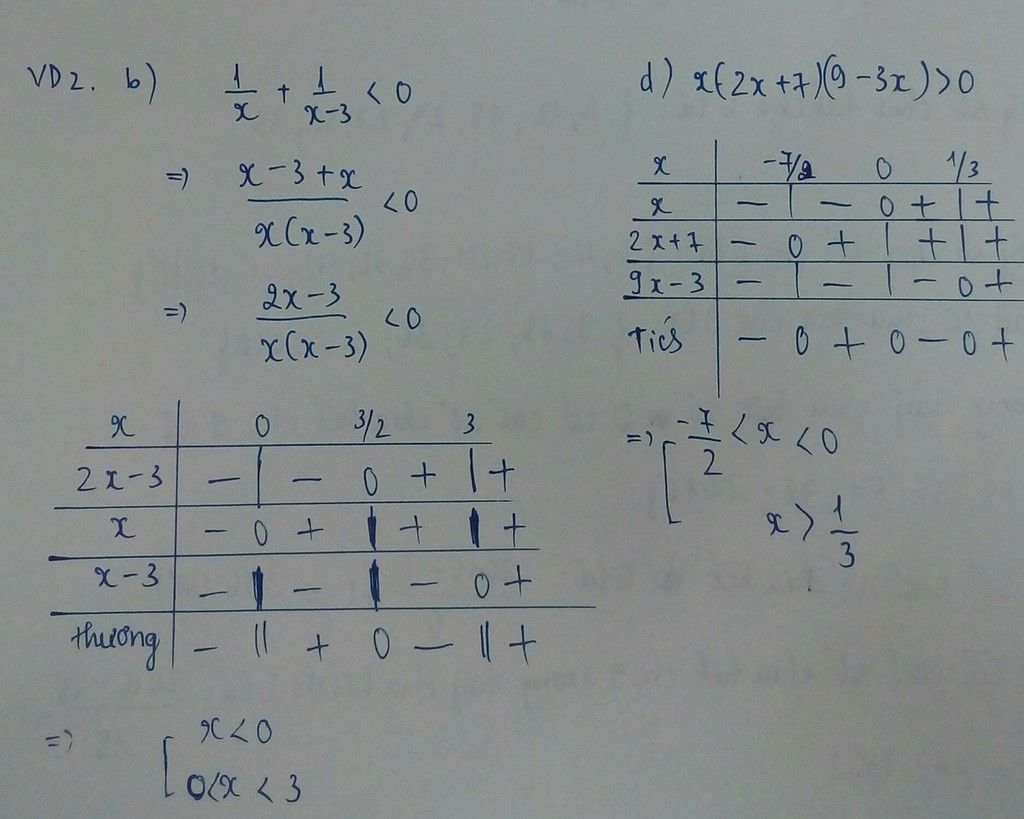 VD2. b) 1/x + 1/(x-3) < 0
=> (x-3+x)/(x(x-3)) < 0
=> (2x-3)/(x(x-3)) < 0
x | 0 3/2 3
2x-3 | - | - 0 + | +
x | - 0 + | + | +
x-3 | - | - | - 0 +
thương | - || + 0 - || +
=> [ x < 0
0 < x < 3
d) x(2x+7)(9-3x) > 0
x | -7/2 0 1/3
x | - | - 0 + | +
2x+7 | - 0 + | + | +
9x-3 | - | - | - 0 +
Tích | - 0 + 0 - 0 +
=> [ -7/2 < x < 0
x > 1/3